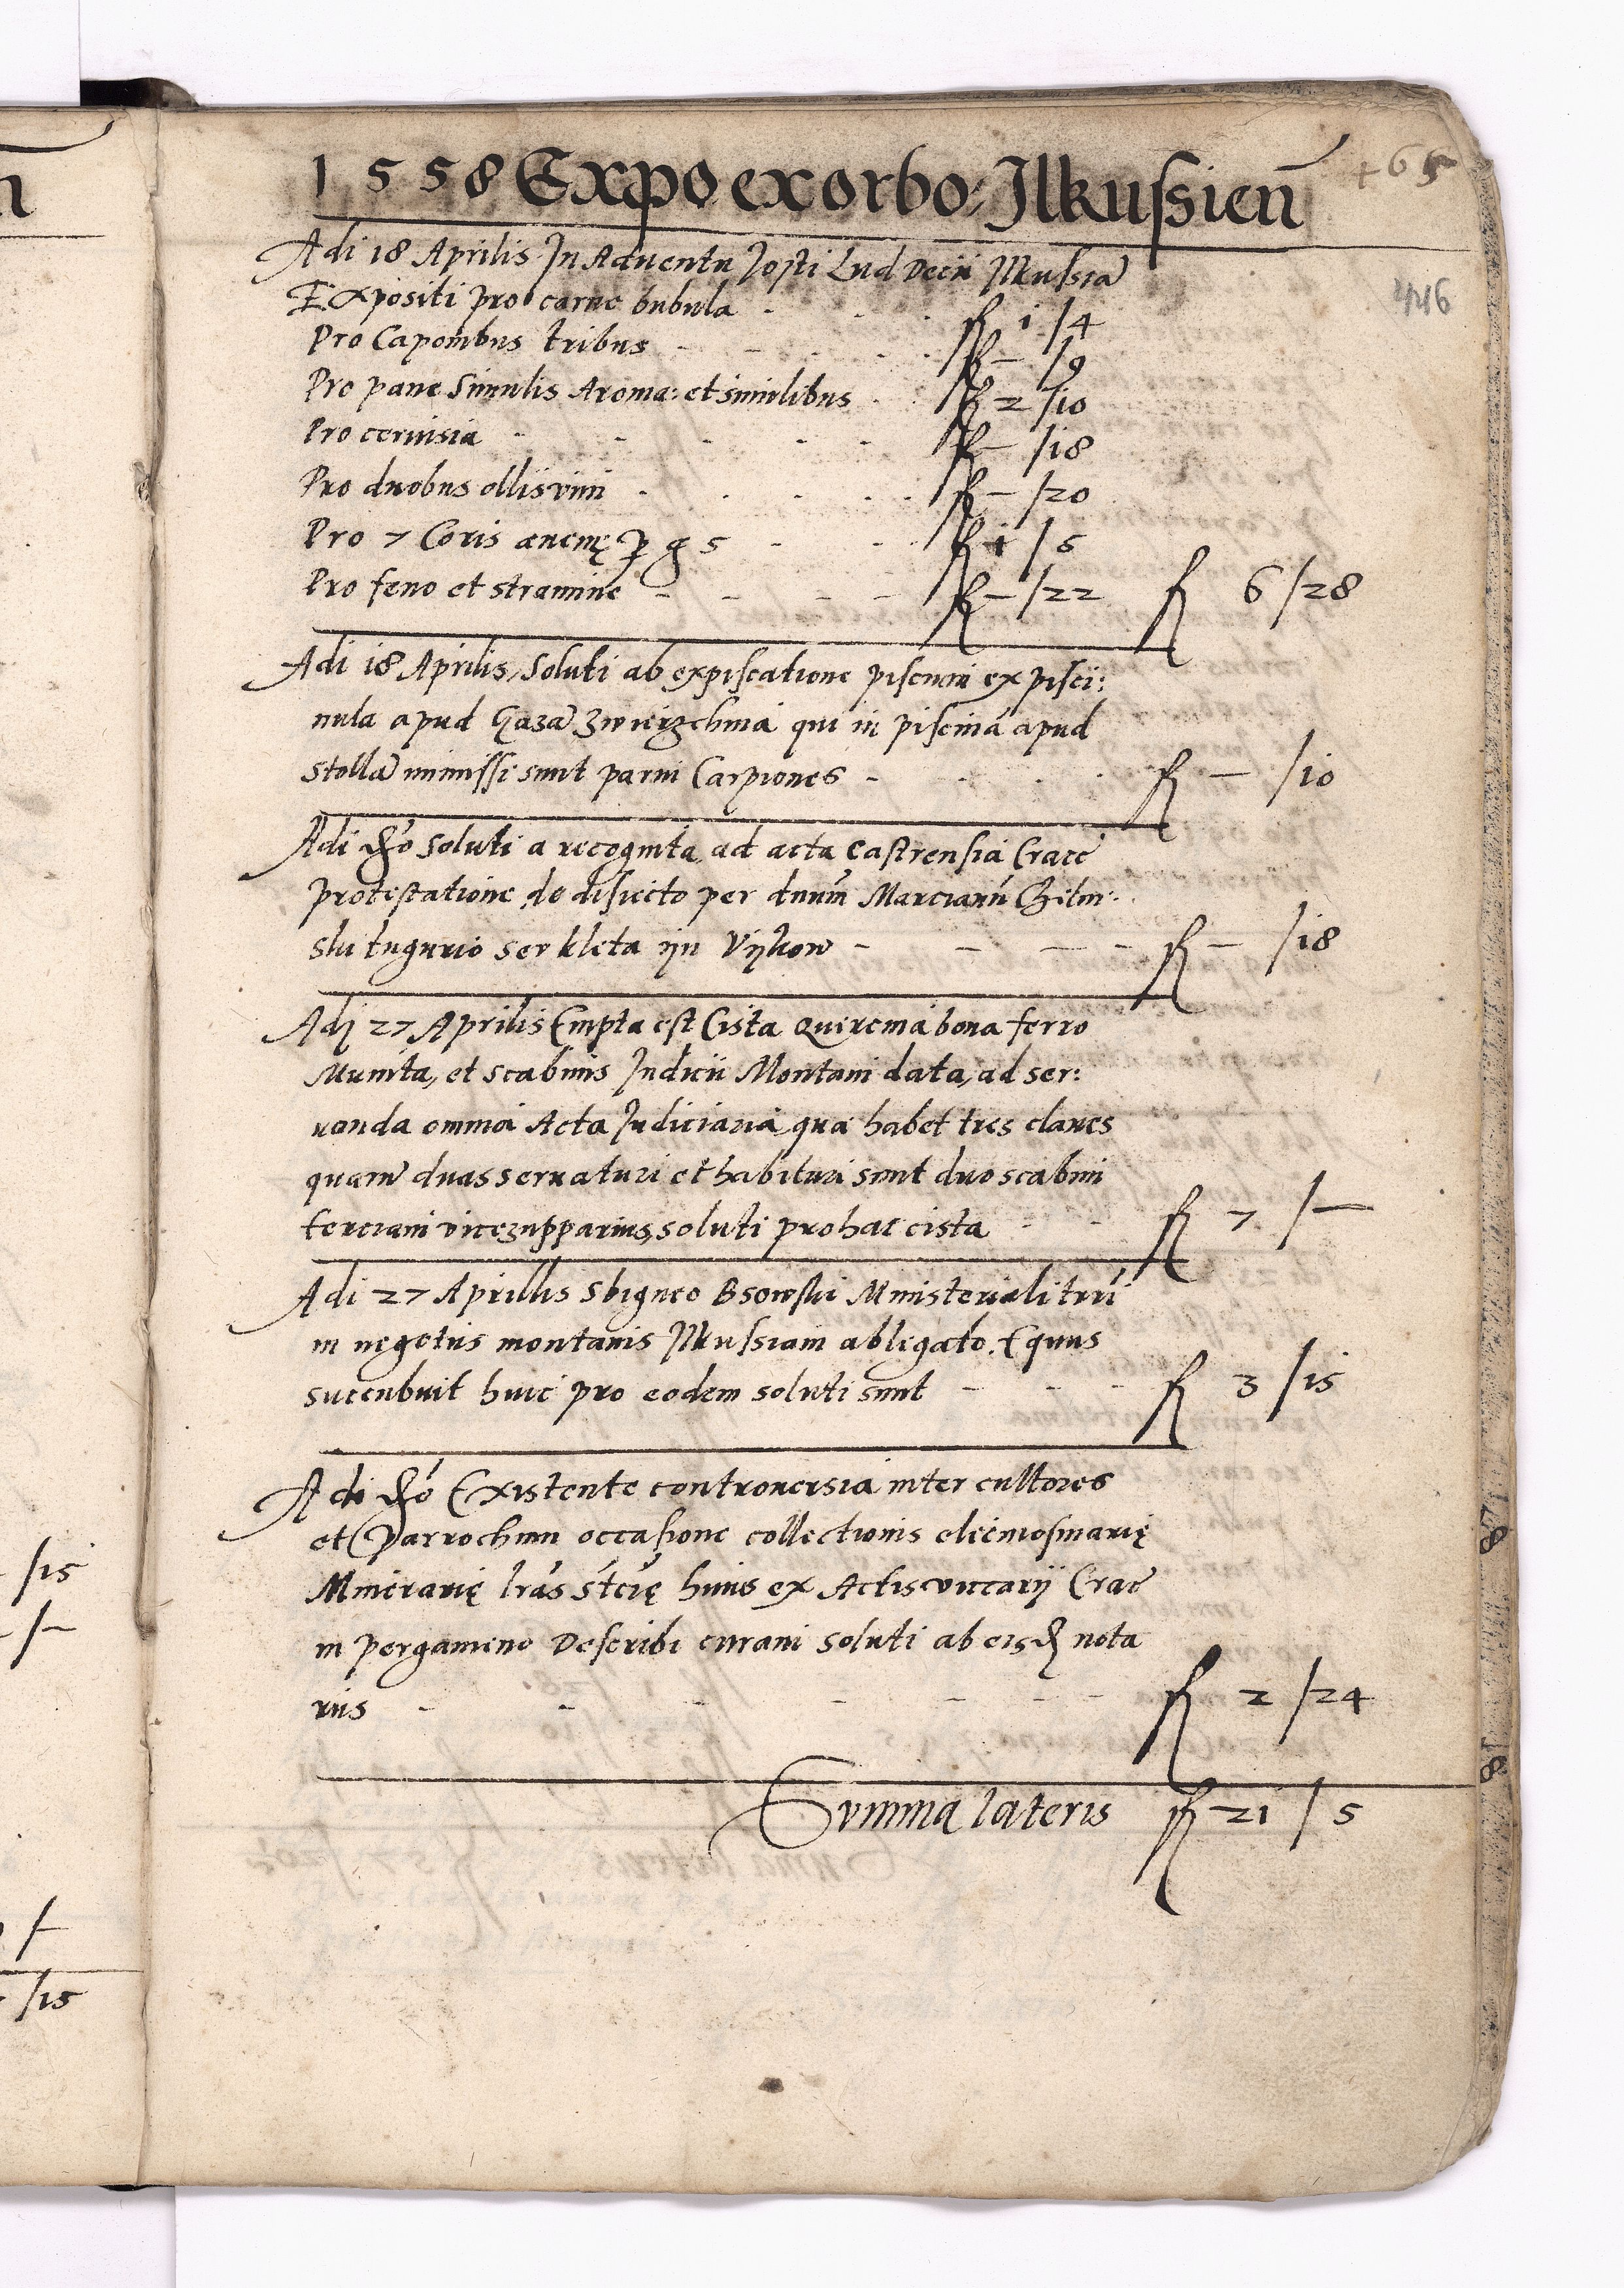 1558 Expo ex orbo: Ilkussien̄
+65
446
Adi 18 Aprilis In Aduentu Josti Lud Decii Ilkussiā
Expositi pro carne bubula - - - fl 1 /4
Pro Caponibus tribus - - - fl - /9
Pro pane Simulis Aroma: et similibus - fl 2 /10
Pro ceruisia - - - - - fl - /18
Pro duobus ollis vini - - - - fl - /20
Pro 7 Coris auenę p g 5 - - fl 1 / 5
Pro feno et stramine - - - - fl - /22 fl 6 /28
Adi 18 Aprilis, Soluti ab expiscatione piscium ex pisci:
nula apud Gazā Zwierzchnia qui in piscina apud
Stollā immissi sunt parui Carpiones - - - fl - /10
Adi dto Soluti a recognita ad acta Castrensia Cracc
protestatione de disiecto per dnum Marcianū
slu tugurio seu kleta in Vijkow - - - - fl - /18
Adj 27 Aprilis Empta est Cista Querema bona ferro
Munita, et scabinis Judicii Montani data, ad ser:
uanda omnia Acta Judiciaria, qua habet tres claues
quarū duas seruaturi et habituri sunt duo scabini
terciam vicezupparius, soluti pro hac cista - - fl 7 / -
Adi 27 Aprillis Sbigneo Bsowski Ministeriali trri
in negotiis montanis Ilkussiam ablegato. Equus
succubuit huic pro eodem soluti sunt - - - fl 3 /15
Adi dto Existente controuersia inter cultores
et Parrochum occasione collectionis eleemosinarię
Minerarię lras stcię huius ex Actis viccarij Crac
in pergameno Describi curaui soluti ab eisd nota
riis - - - - - - - fl 2 /24
Summa lateris fl 21 / 5
/15
/-
/-
/15